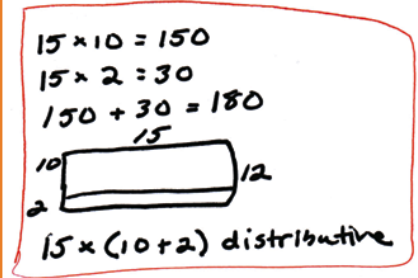 15 × 10 = 150
15 × 2 = 30
150 + 30 = 180
15
10
12
2
15 × (10 + 2) distributive